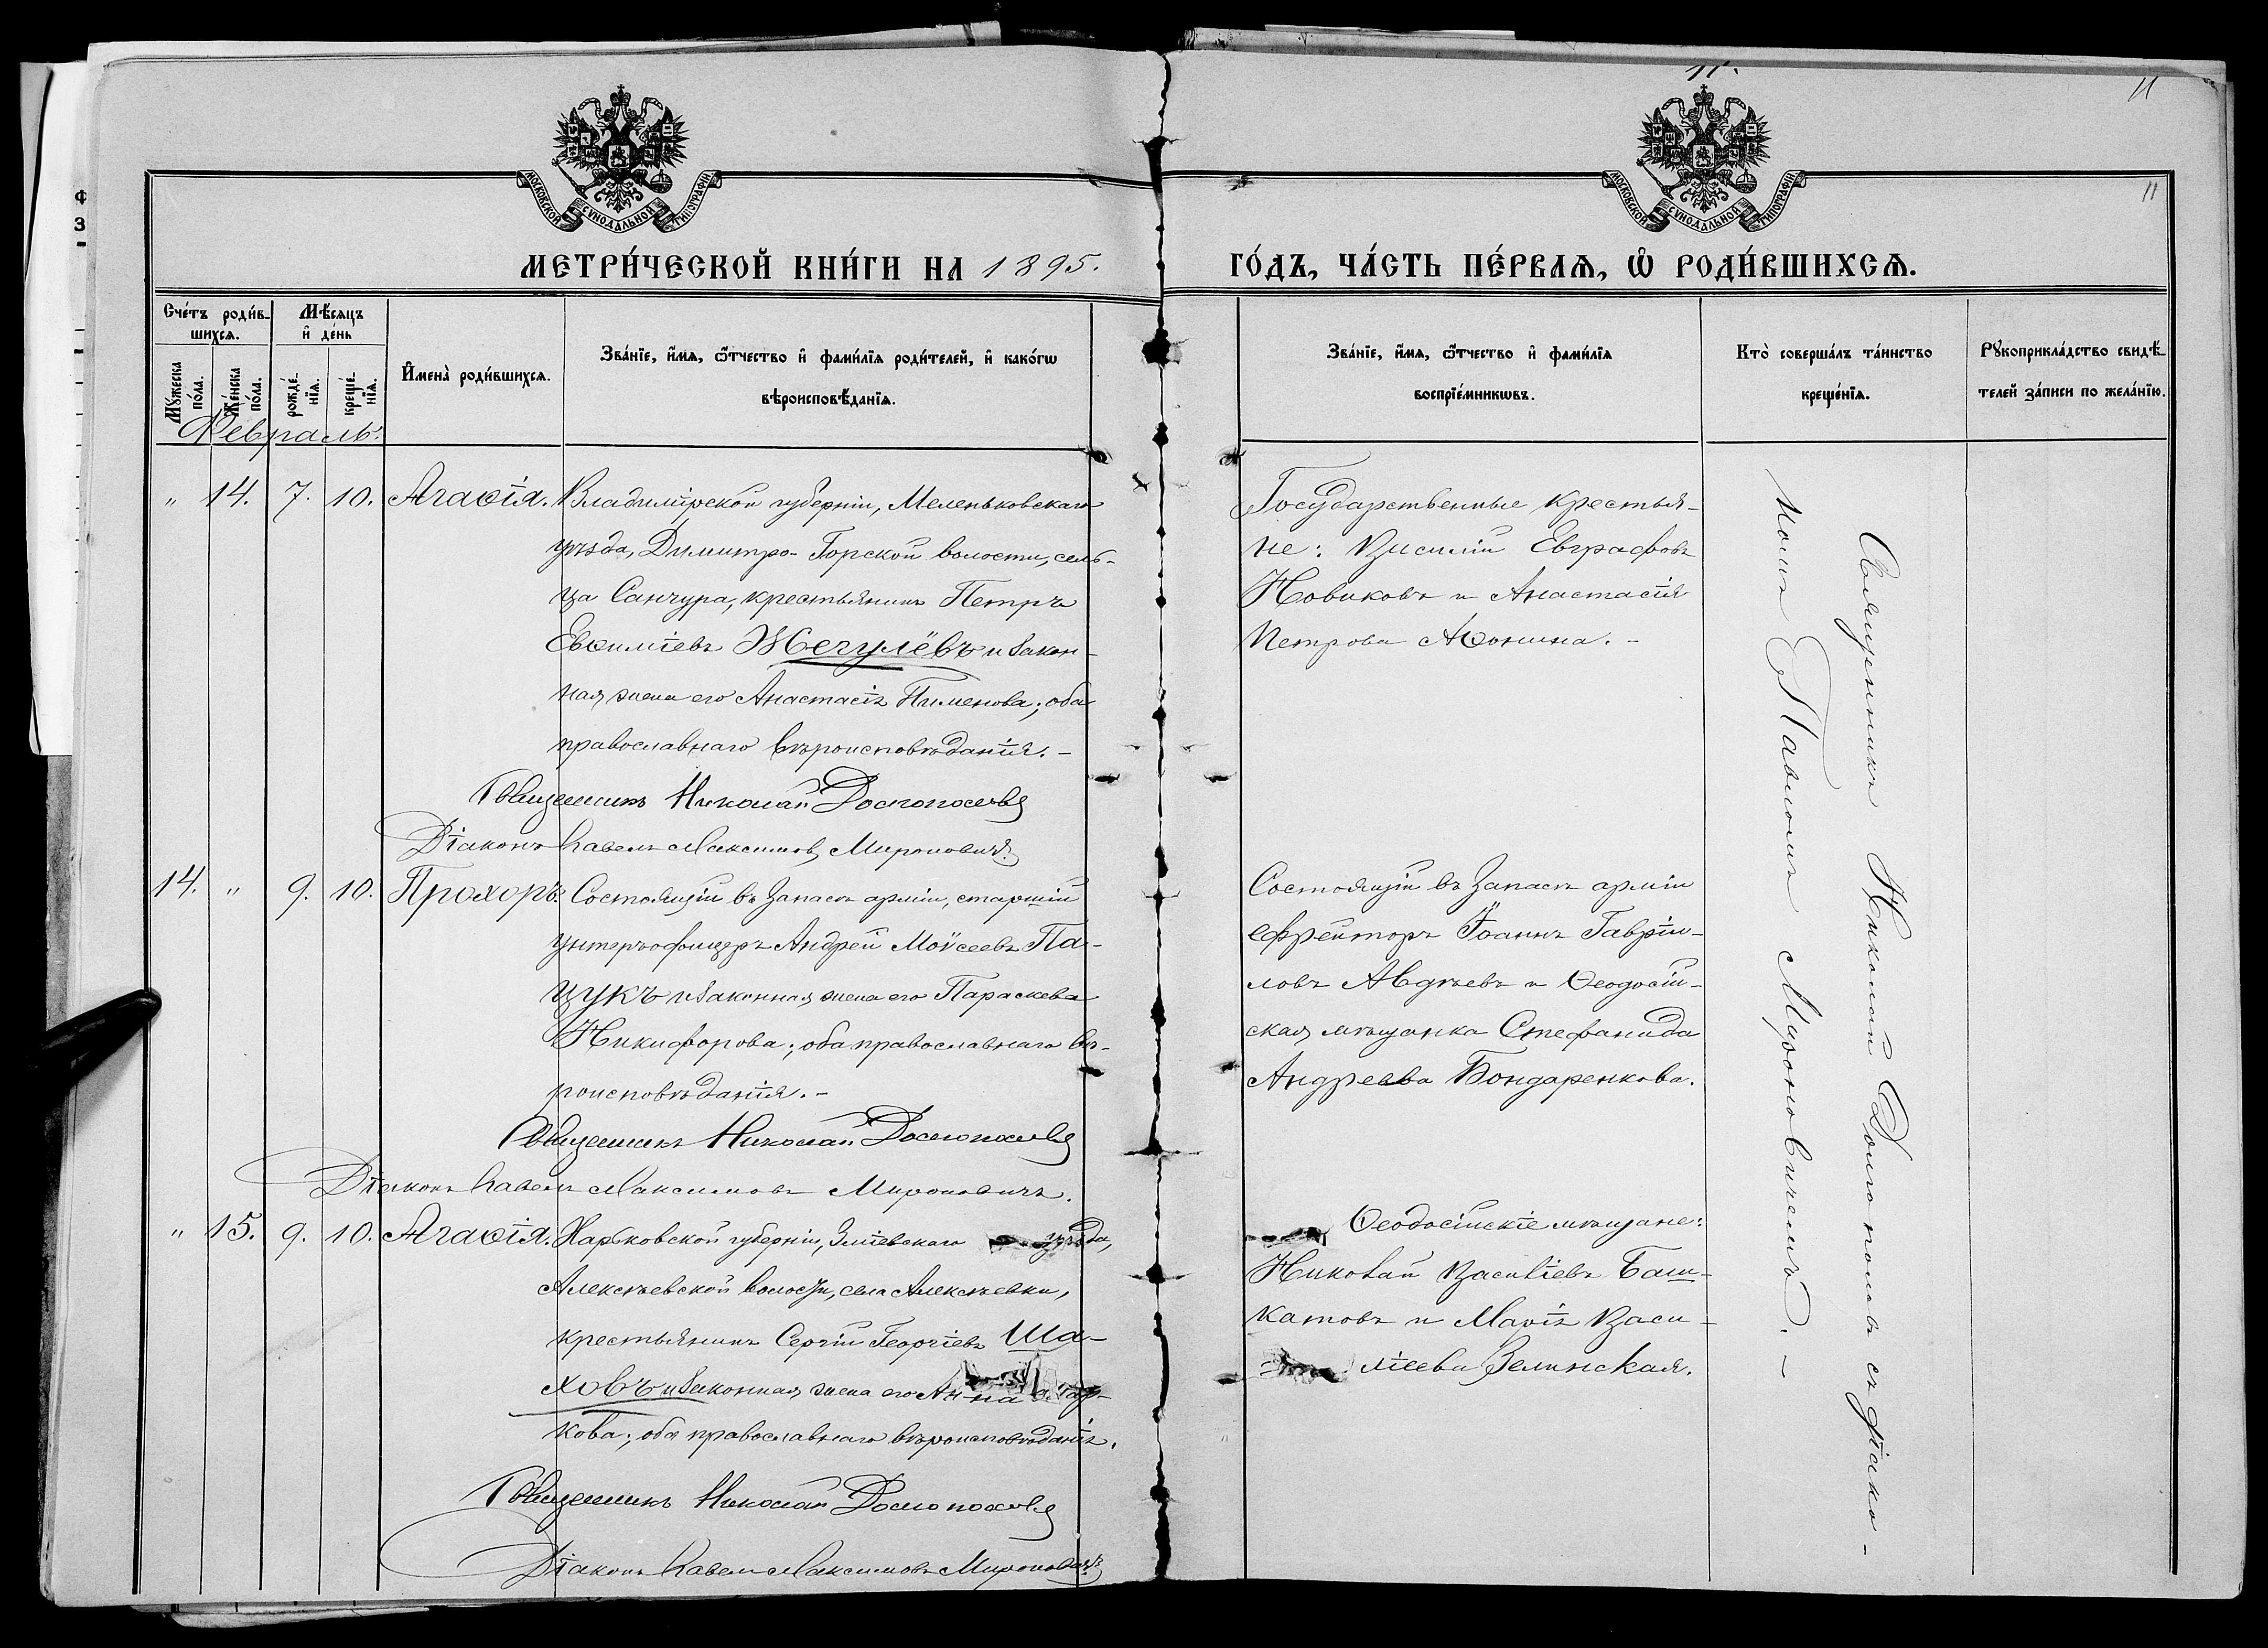 11.
11
11
МОСКОВСКОЙ СѴНОДАЛЬНОЙ ТИПОГРАФІИ
МОСКОВСКОЙ СѴНОДАЛЬНОЙ ТИПОГРАФІИ
МЕТРИ́ЧЕСКОЙ КНИ́ГИ НА 1895.
ГО́ДЪ, ЧА́СТЬ ПЕ́РВАѦ, Ѡ҆ РОДИ́ВШИХСѦ.
Сче́тъ роди́в-
шихсѧ.
Мꙋ́жеска по́ла.
Же́нска по́ла.
Мѣ́сѧцъ
и҆ де́нь
рожде́-
нїѧ.
креще́-
нїѧ.
И҆мена̀ роди́вшихсѧ.
Зва́нїе, и҆́мѧ, ѻ҆́тчество и҆ фами́лїѧ роди́телей, и҆ како́гѡ
вѣроисповѣ́данїѧ.
Зва́нїе, и҆́мѧ, ѻ҆́тчество и҆ фами́лїѧ
воспрїе́мникѡвъ.
Кто̀ соверша́лъ та́инство
креще́нїѧ.
Рꙋкоприкла́дство свидѣ́-
телей за́писи по жела́нїю.
Февраль.
" 14. 7. 10. Агаѳія. Владимірской губерніи, Меленьковскаго
уѣзда, Димитро-Горской волости, сель-
ца Санчура, крестьянинъ Петръ
Евѳиміевъ Жегулёвъ и закон-
ная жена его Анастасія Пименова; оба
православнаго вѣроисповѣданія.-
Священникъ Николай Долгополовъ
Діаконъ Павелъ Максимовъ Мироновичъ.
Государственные крестья-
не: Василій Евграфовъ
Новиковъ и Анастасія
Петрова Аѳонина.-
14. " 9. 10. Прохоръ. Состоящій въ запасѣ арміи, старшій
унтеръ-офицеръ Андрей Моѵсеевъ Па-
цукъ и законная жена его Параскева
Никифорова; оба православнаго вѣ-
роисповѣданія.-
Священникъ Николай Долгополовъ
Діаконъ Павелъ Максимовъ Мироновичъ.
Состоящій въ запасѣ арміи
ефрейторъ Іоаннъ Гавріи-
ловъ Авдѣевъ и Ѳеодосій-
ская мѣщанка Стефанида
Андреева Бондаренкова.
" 15. 9. 10. Агаѳія. Харьковской губерніи, Зміевскаго уѣзда,
Алексѣевской волости, села Алексѣевки,
крестьянинъ Сергій Георгіевъ Ша-
ховъ и законная жена его Анна
кова; оба православнаго вѣроисповѣданія.
Священникъ Николай Долгополовъ
Діаконъ Павелъ Максимовъ Мироновичъ
Ѳеодосійскіе мѣщане:
Николай Василіевъ Баш-
катовъ и Марія Васи-
ліева Зелинская.
Священникъ Николай Долгополовъ съ діако-
номъ Павломъ Мироновичемъ.-